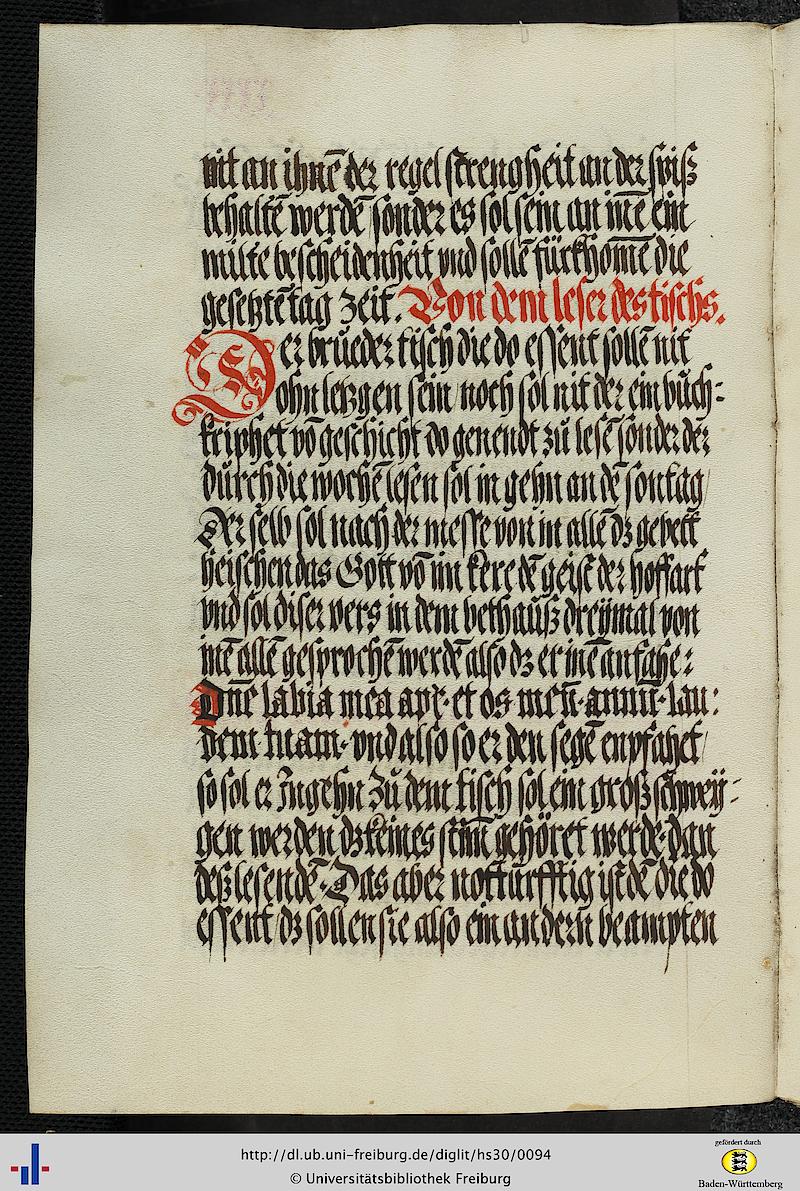 nit an ihnē der regel strengheit an der spiß
behaltē werdē sonder es sol sein an inē ein
milte bescheidenheit vnd sollē fürkhomē die
gesetztē tag zeit. Von dem leser des tischs.
Der brueder tisch die do essent sollē nit
ohn letzgen sein / noch sol nit der ein buch-
kriphet vō geschicht do genendt zů lesē sonder der
durch die wochē lesen sol in gehn an dē sontag /
Der selb sol nach der messe von in allē dz gebett
heischen das Gott vō im kere dē geist der hoffart
vnd sol diser vers in dem bethauß dreÿmal von
inē allē gesprochē werdē also dz er inē anfahe:
Dn̄e labia mea apr. et os meū. annūn. lau:
dem tuam. vnd also so er den segē enpfahet /
so sol er Ingehn Zů dem tisch sol ein groß schweÿ-
gen werden dz keines stim̄ gehöret werde. dan
deß lesendē. Das aber notturfftig ist dē die do
essent / dz sollen sie also ein andern beampten
http://dl.ub.uni-freiburg.de/diglit/hs30/0094
© Universitätsbibliothek Freiburg
gefördert durch
Baden-Württemberg